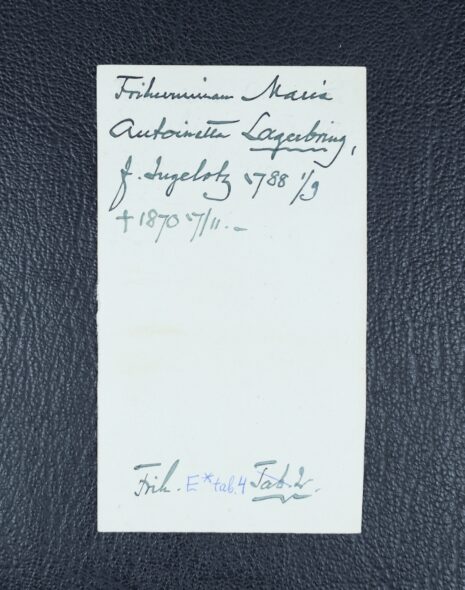 Friherrinnan Maria
Antoinetta Lagerbring,
f. Ingelotz 1788 1/9
† 1870 17/11. –
Frih. E* tab. 4 Tab. 2.